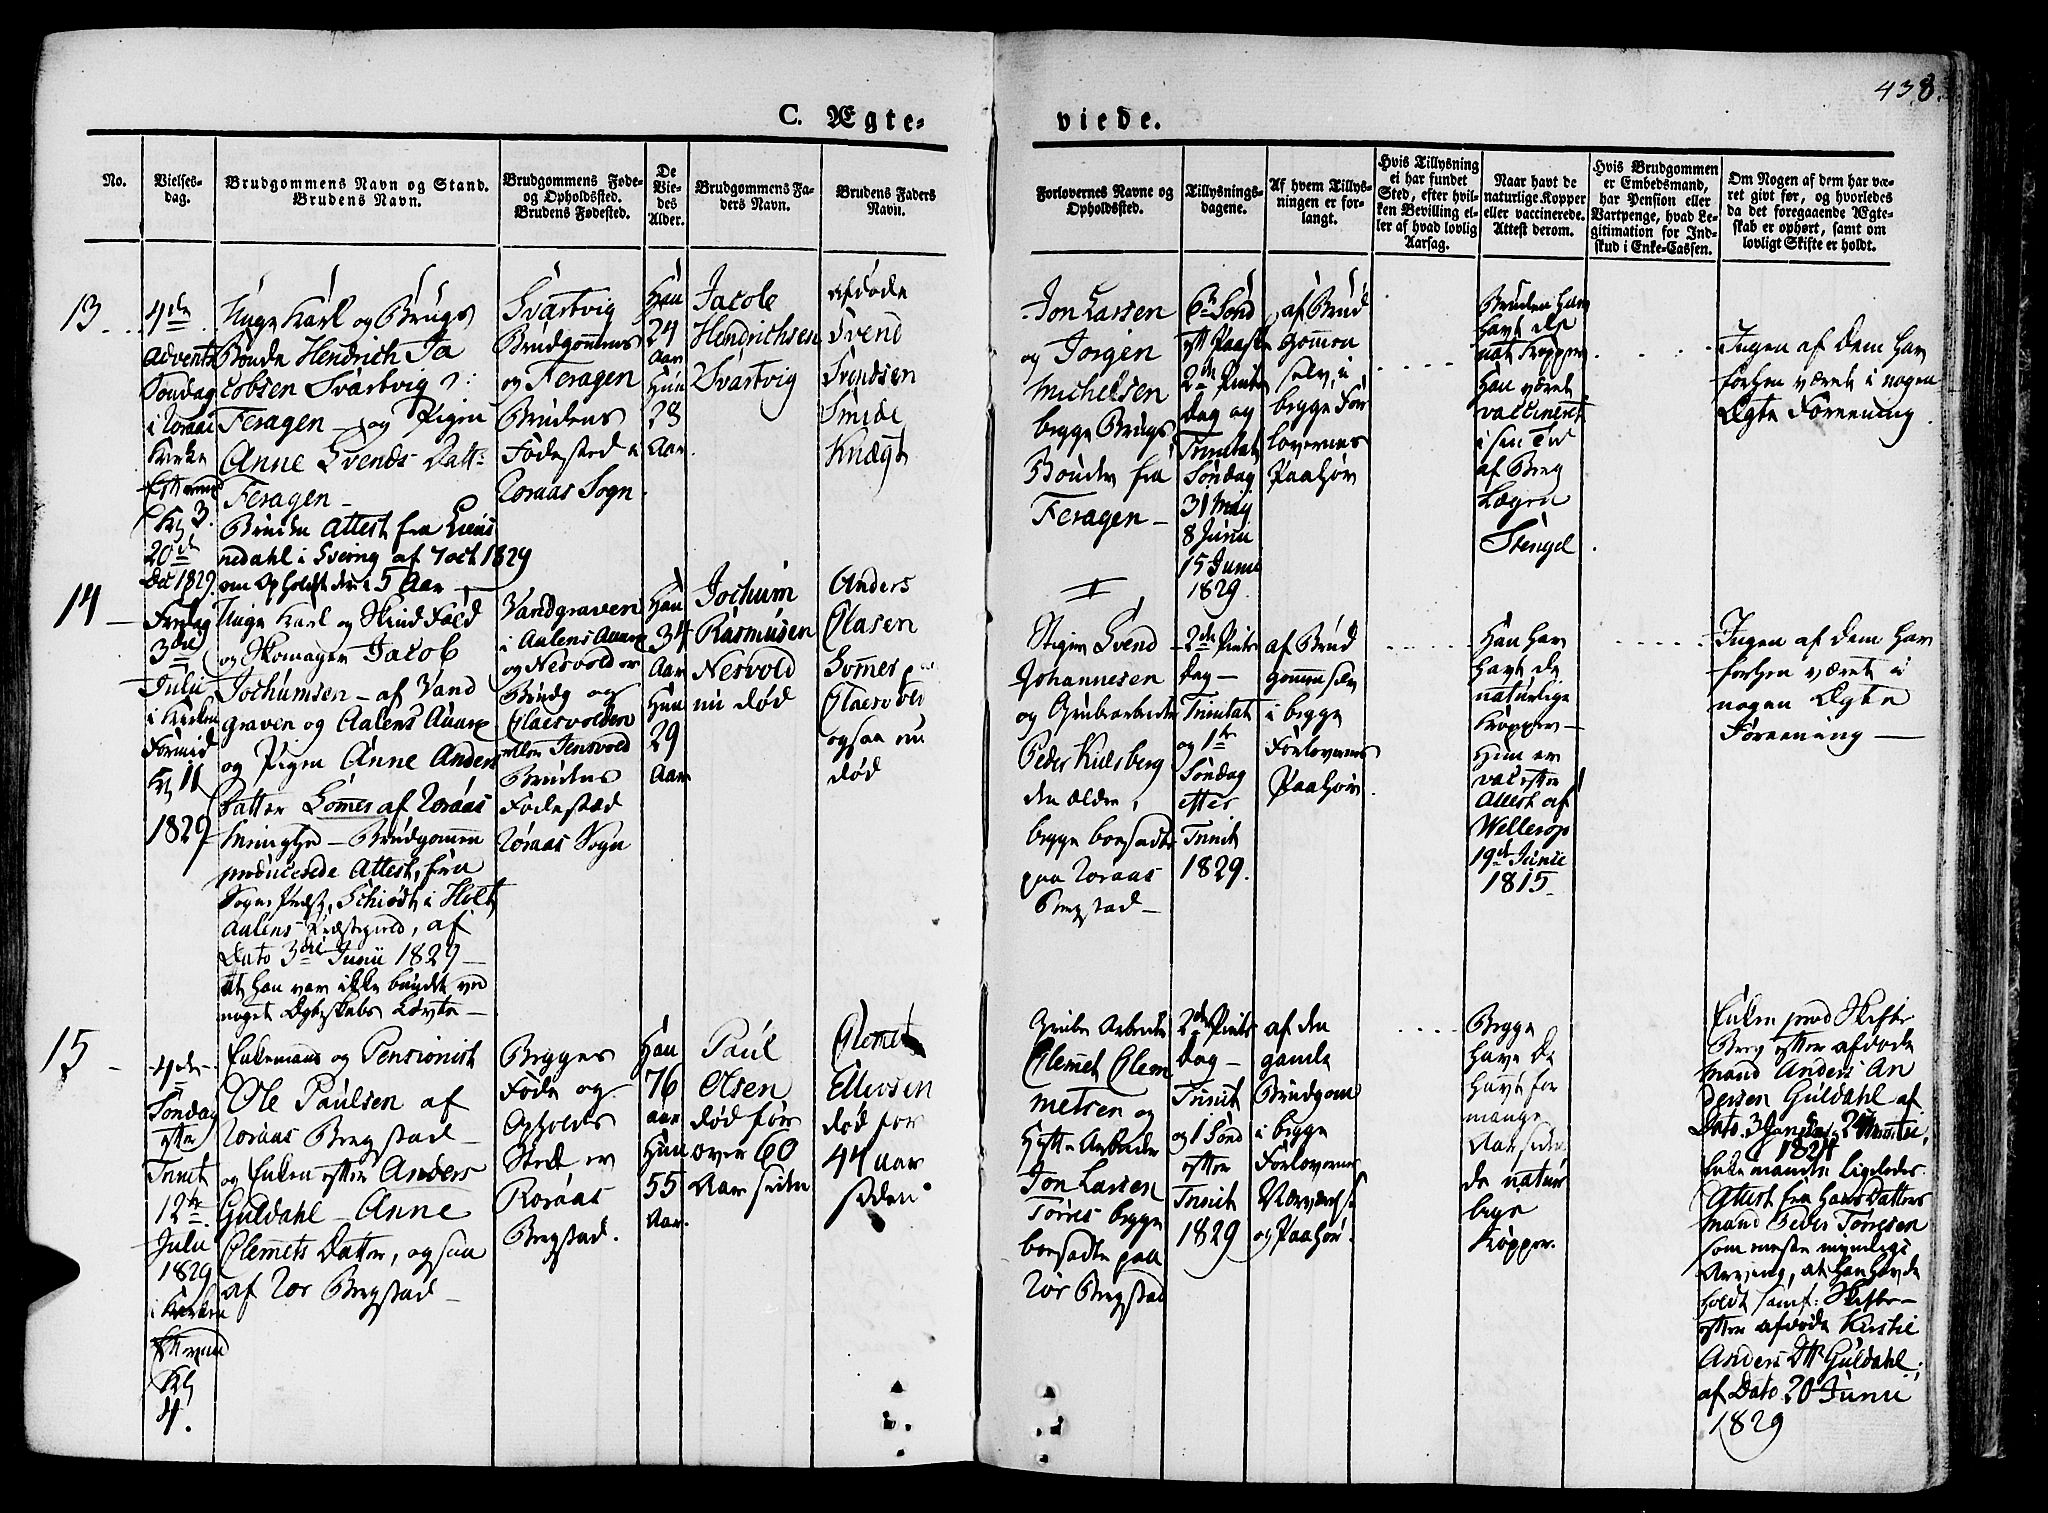 438.
C. Ægte-
viede.
No.
Vielses-
dag.
Brudgommens Navn og Stand.
Brudens Navn.
Brudgommens Føde-
og Opholdssted.
Brudens Fødested.
De
Vie-
des
Alder.
Brudgommens Fa-
ders Navn.
Brudens Faders
Navn.
Forlovernes Navne og
Opholdssted.
Tillysnings-
dagene.
Af hvem Tillys-
ningen er for-
langt.
Hvis Tillysning
ei har fundet
Sted, efter hvil-
ken Bevilling el-
ler af hvad lovlig
Aarsag.
Naar havt de
naturlige Kopper
eller vaccinerede.
Attest derom.
Hvis Brudgommen
er Embedsmand,
har Pension eller
Vartpenge, hvad Le-
gitimation for Ind-
skud i Enke-Cassen.
Om Nogen af dem har væ-
ret givt før, og hvorledes
da det foregaaende Ægte-
skab er ophørt, samt om
lovligt Skifte er holdt.
13
4de
Advents
Søndag
i Roraas
Kirke
Efterm
Kl 3.
20de
Dec 1829.
Unge Karl og Brugs
Bonde Hendrich Ja
cobsen Svartvig
Feragen – og Pigen
Anne Svends Datt:
Feragen –
Bruden Attest fra
nedahl i Sverrig af 7 oct 1829
om Ophold der i 5 Aar –
Svartvig
Brudgommens
og Feragen
Brudens
Fødested i
Roraas Sogn.
Han
24
Aar
Hun
28
Aar
Jacob
Hendrichsen
Svartvig
afdøde
Svend
Svendsen
Smide
Knægt
Jon Larsen
og Jørgen
Michelsen
begge Brugs
Bønder fra
Feragen –
6te Sønd
eft Paaske
2den Pintse
dag og
Trinitat
Søndag
31 May
8 Junii
15 Junii
1829.
af Brud
gommen
selv, i
begge For
lovernes
Paahør
Bruden har
havt de
nat Kopper
Han været
vaccineret
i sin Tid
af Berg
Lægen
Stengel
Ingen af Dem har
forhen været i nogen
Ægte Foreening
14
Fredag
3die
Julii
i Kirken
Formid
Kl 11
1829
Unge Karl og Skind Fæld
og Skomager Jacob
Jochumsen – af Vand
graven og Aalens Annex
og Pigen Anne Anders
Datter Sommer af Roraas
Menighed – Brudgommen
producerede Attest, fra
Sogne Præst, Schiødt i Holt
Aalens Præstegield, af
Dato 3die Junii 1829 –
at han var ikke bundet ved
noget Ægteskabs Løvte –
Vandgraven
i Aalens Annex
og Nesvold er
Brudg og
Claesvolden
eller Jensvold
Brudens
Fødestæd
Roraas Sogn
Han
34
Aar
Hun
29
Aar
Jochum
Rasmusen
Nesvold
nu død
Anders
Olasen
Sommer
Claesvold
ogsaa nu
død
Stiger Svend
Johannesen
og Grubearbeider
Peder Kuilsberg
den ældre,
begge boesadte
paa Roraas
Bergstad –
2den Pintse
Dag –
Trinitat
og 1te
Søndag
efter
Trinit
1829.
af Brud
gommen selv
i begge
Forlovernes
Paahør.
Han har
havt de
naturlige
Kopper –
Hun er
vac efter
Attest af
Wellerop
19de Junii
1815
Ingen af dem har
forhen været i
nogen Ægte
Foreening –
15
4de
Søndag
efter
Trinit
12te
Julii
1829
i Kirken
Efterm
Kl
4.
Enkemand og Pensionist
Ole Paulsen af
Roraas Bergstad –
og Enken efter Anders
Guldahl – Anne
Clemets Datter, ogsaa
af Ror Bergstad –
Begges
Føde og
Opholds
Sted er
Roraas
Bergstad.
Han
76
aar
Hun
55
Aar.
Paul
Olsen
død før
over 60
Aar siden
Clemet
Ellevsen
død for
44 aar
siden
Grube Arbeider
Clemet Clem
metsen og
Hytte Arbeider
Jon Larsen
Tørres begge
boesadte paa
Ror Bergstad
2den Pintse
Dag –
Trinit
og 1 Sønd
efter
Trinit
1829
af den
gamle
Brudgom
i begge
Forlovernes
og Paahør.
Begge
have de
havt for
mange
Aar siden
de natur
lige
Kopper.
Enken prod Skifte
Brev efter afdøde
mand Anders An
dersen Guldahl af
Dato
Enkemanden ligeledes
Attest fra hans Datters
mand Peder Tørresen
som eneste myndige
Arving, at han havde
holdt Skifte –
efter afdøde Kirstie
Anders Dttr Guldahl;
af Dato 20 Junii
1829